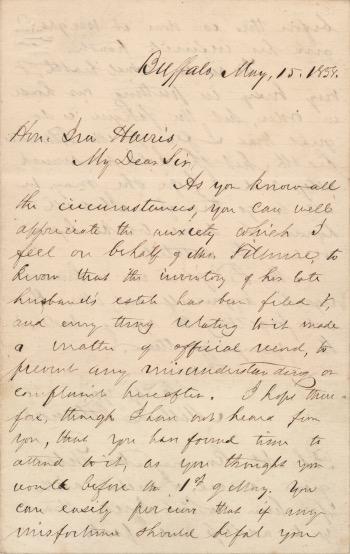 Buffalo, May, 15. 1859.
Hon. Ira Harris
My Dear Sir,
As you know all
the circumstances, you can well
appriciate the anxiety which I
feel on behalf of Mrs. Fillmore, to
know that the inventory of his late
husband's estate has been filed &,
and every thing relating to it made
a matter of official record, to
prevent any misunderstanding or
complaint hereafter. I hope there-
fore, though I have not heard from
you, that you have found time to
attend to it, as you thought you
would before the 1st of May. You
can easily perceive that if any
misfortune should befal you